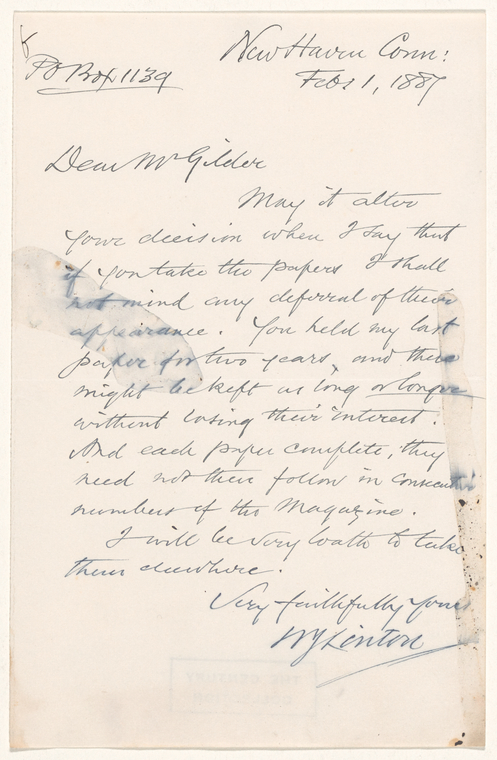 New Haven Conn:
PO Box 1139
Feb 1, 1887
Dear Mr Gilder
May it alter
your decision when I say that
if you take the papers I shall
not mind any deferral of their
appearance. You held my last
paper for two years, and these
might be kept as long or longer
without losing their interest.
And each paper complete, they
need not then follow in consecutive
numbers of the Magazine.
I will be very loath to take
them elsewhere.
Very faithfully yours
WJ Linton
THE CENTURY